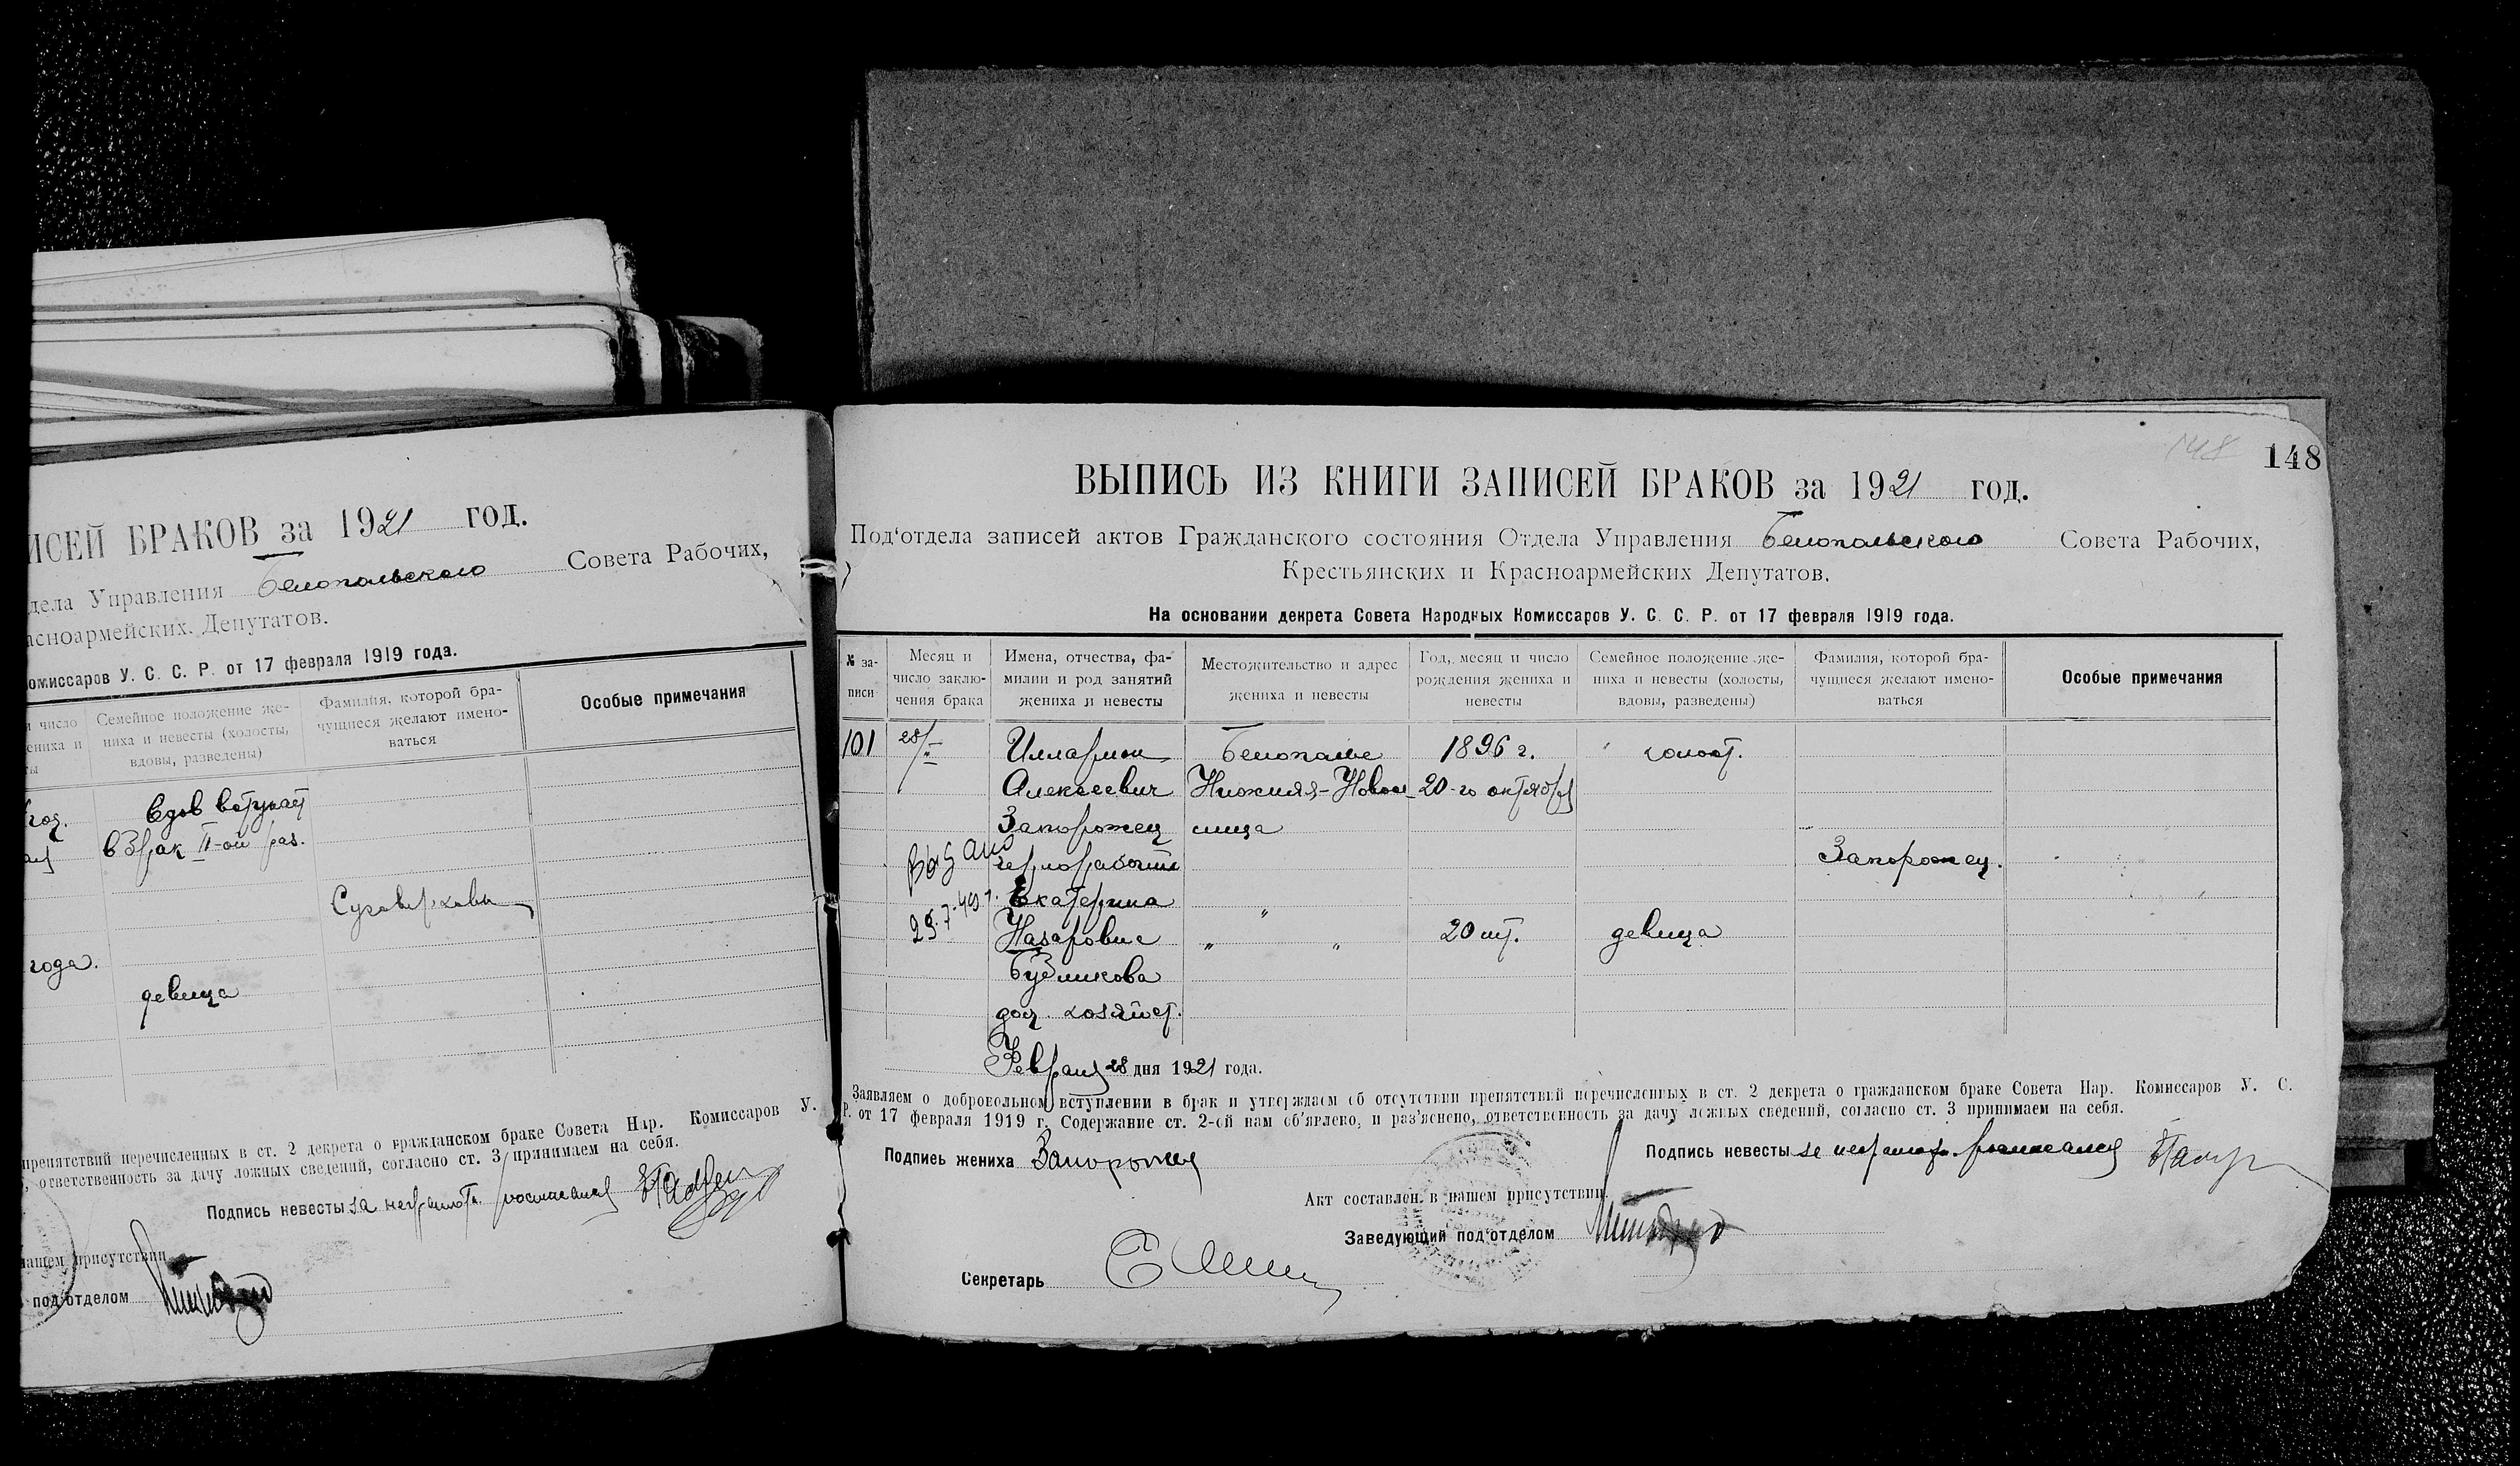 ИСЕЙ БРАКОВ за 1921 год.
дела Управления Белопольского Совета Рабочих,
асноармейских. Депутатов.
омиссаров У. С. С. Р. от 17 февраля 1919 года.
и число
ениха и
ты
Семейное положение же-
ниха и невесты (холосты,
вдовы, разведены)
Фамилия, которой бра-
чущиеся желают имено-
ваться
Особые примечания
год.
Вдов вступает
в брак II-ой раз.
года.
девица
препятствий перечисленных в ст. 2 декрета о гражданском браке Совета Нар. Комиссаров У.
, ответственность за дачу ложных сведений, согласно ст. 3 принимаем на себя.
Подпись невесты за неграмотн.
нашем присутствии
под'отделом
148
148
ВЫПИСЬ ИЗ КНИГИ ЗАПИСЕЙ БРАКОВ за 1921 год.
Под'отдела записей актов Гражданского состояния Отдела Управления Белопольского Совета Рабочих,
Крестьянских и Красноармейских Депутатов.
На основании декрета Совета Народных Комиссаров У. С. С. Р. от 17 февраля 1919 года.
№ за-
писи
Месяц и
число заклю-
чения брака
Имена, отчества, фа-
милии и род занятий
жениха и невесты
Местожительство и адрес
жениха и невесты
Год, месяц и число
рождения жениха и
невесты
Семейное положение же-
ниха и невесты (холосты,
вдовы, разведены)
Фамилия, которой бра-
чущиеся желают имено-
ваться
Особые примечания
101 28/II Илларион Белополье 1896 г. холост.
Алексеевич Нижняя-Новос 20-го октября
Запорожец лица
Выдано чернорабочий Запорожец.
Екатерина "
Назаровне " " 20 лет. девица
Будникова
дом. хозяйст.
Февраля 28 дня 1921 года.
Заявляем о добровольном вступлении в брак и утверждаем об отсутствии препятствий перечисленных в ст. 2 декрета о гражданском браке Совета Нар. Комиссаров У. С.
Р. от 17 февраля 1919 г. Содержание ст. 2-ой нам об'явлено, и раз'яснено, ответственность за дачу ложных сведений, согласно ст. 3 принимаем на себя.
Подпись жениха Запорожец
Подпись невесты
Акт составлен в нашем присутствии.
Заведующий под'отделом
Секретарь